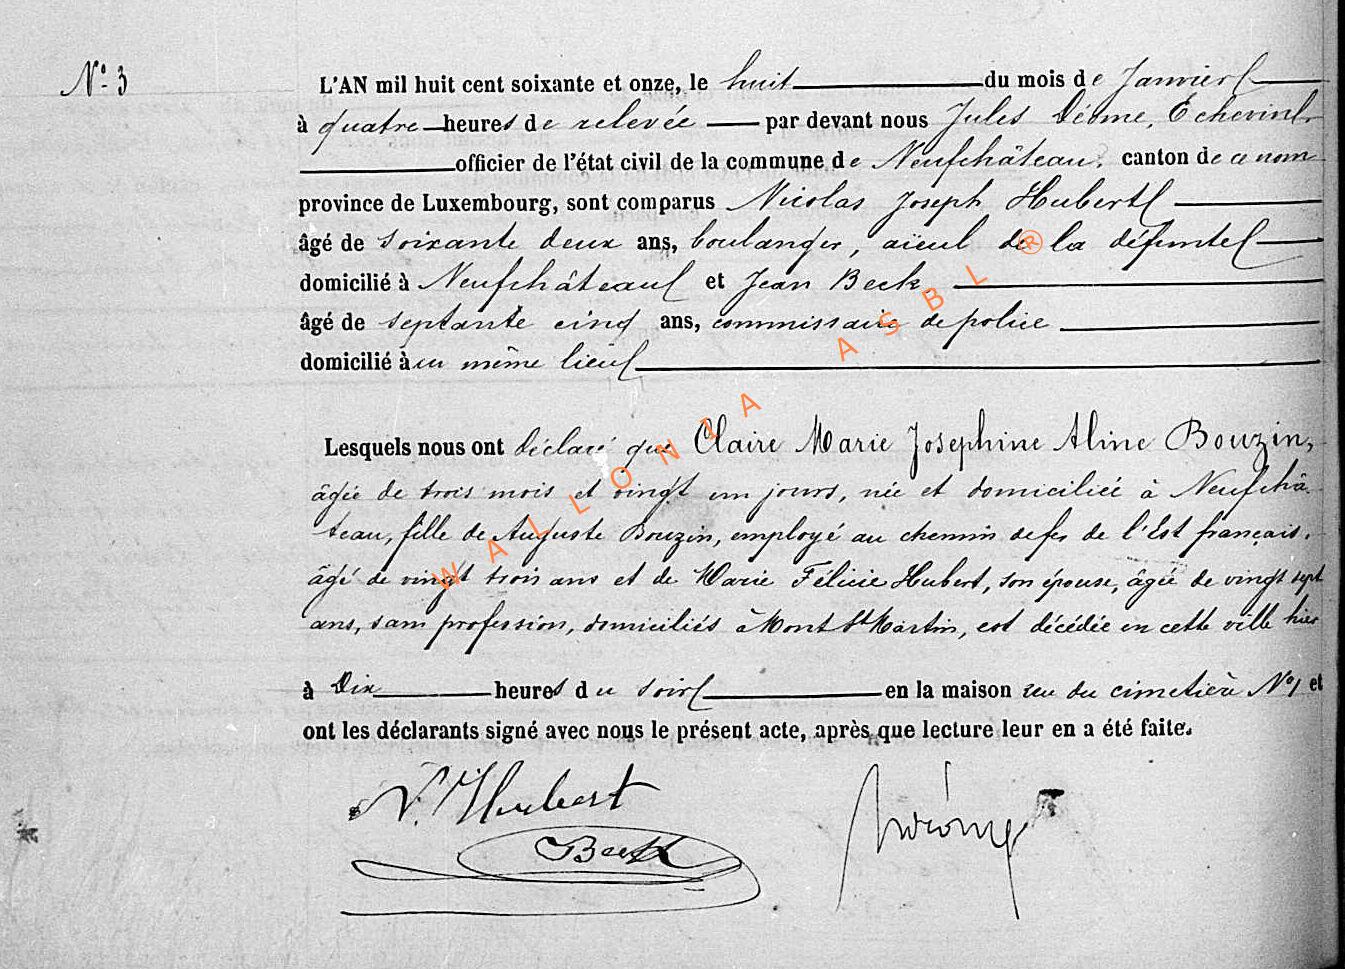 N° 3
L'AN mil huit cent soixante et onze, le huit du mois de Janvier
à quatre heures de relevée par devant nous Jules Echevin
officier de l'état civil de la commune de Neufchâteau, canton de ce nom
province de Luxembourg, sont comparus Nicolas Joseph Hubert
âgé de soixante deux ans, boulanger, aïeul de la défunte
domicilié à Neufchâteau et Jean Beck
âgé de septante cinq ans, commissaire de police
domicilié à u même lieu
Lesquels nous ont déclaré que Claire Marie Josephine Aline Bouzin,
âgée de trois mois et vingt un jours, née et domiciliée à Neufchâ-
teau, fille de Auguste Bouzin, employé au chemin de fer de l'Est français,
âgé de vingt trois ans et de Marie Félicie Hubert, son épouse, âgée de vingt sept
ans, sans profession, domiciliés à Mont St Martin, est décédée en cette ville hier
à Dix heures du soir en la maison rue du cimetière N° 1 et
ont les déclarants signé avec nous le présent acte, après que lecture leur en a été faite.
N. Hubert
Beck
WALLONIA ASBL ®